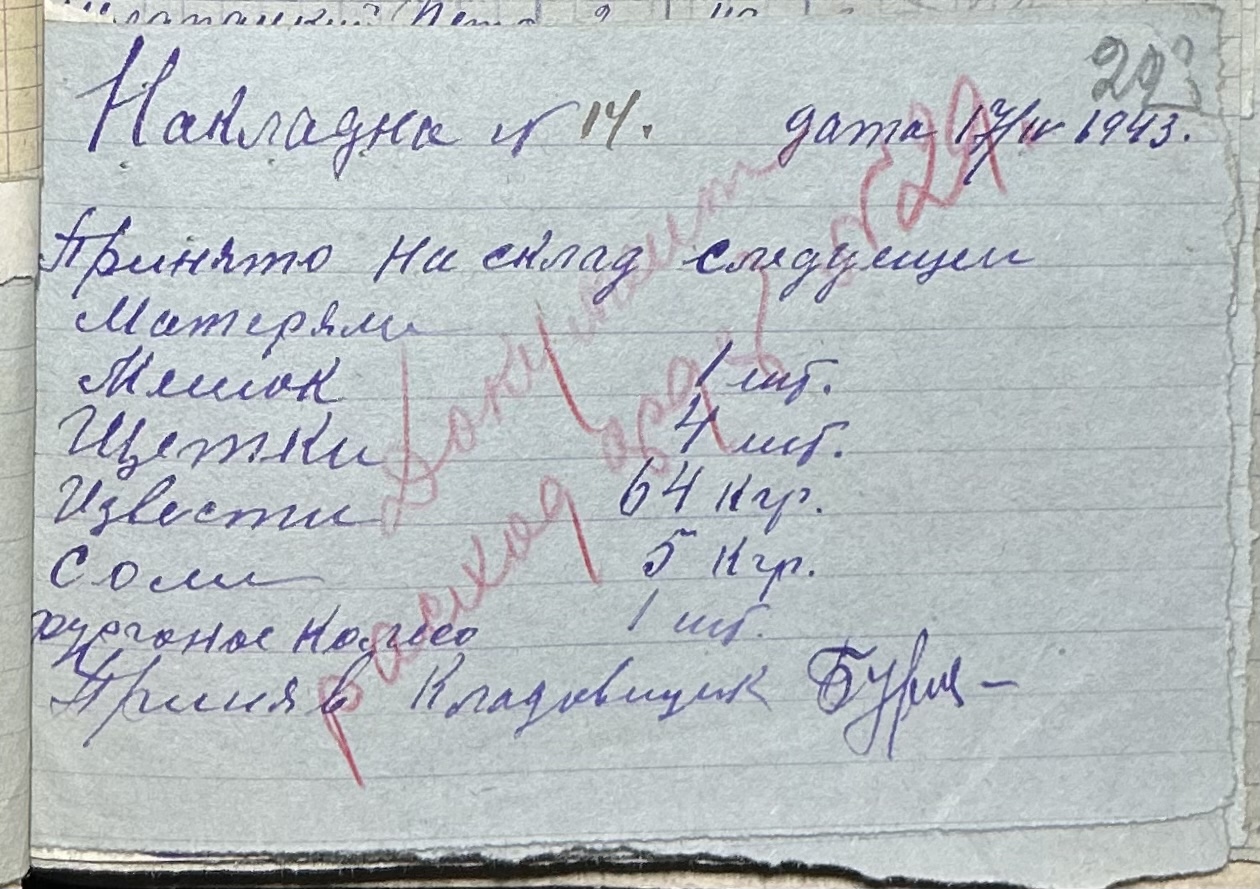 29
Накладна № 14. дата 17/IV 1943.
Принято на склад следуещи
Матеряли
Мешок 1 шт.
Щетки 4 шт.
Извести 64 кгр.
Соли 5 кгр.
фургоное колесо 1 шт.
Приняв Кладовщик
Документ № 29.
расход